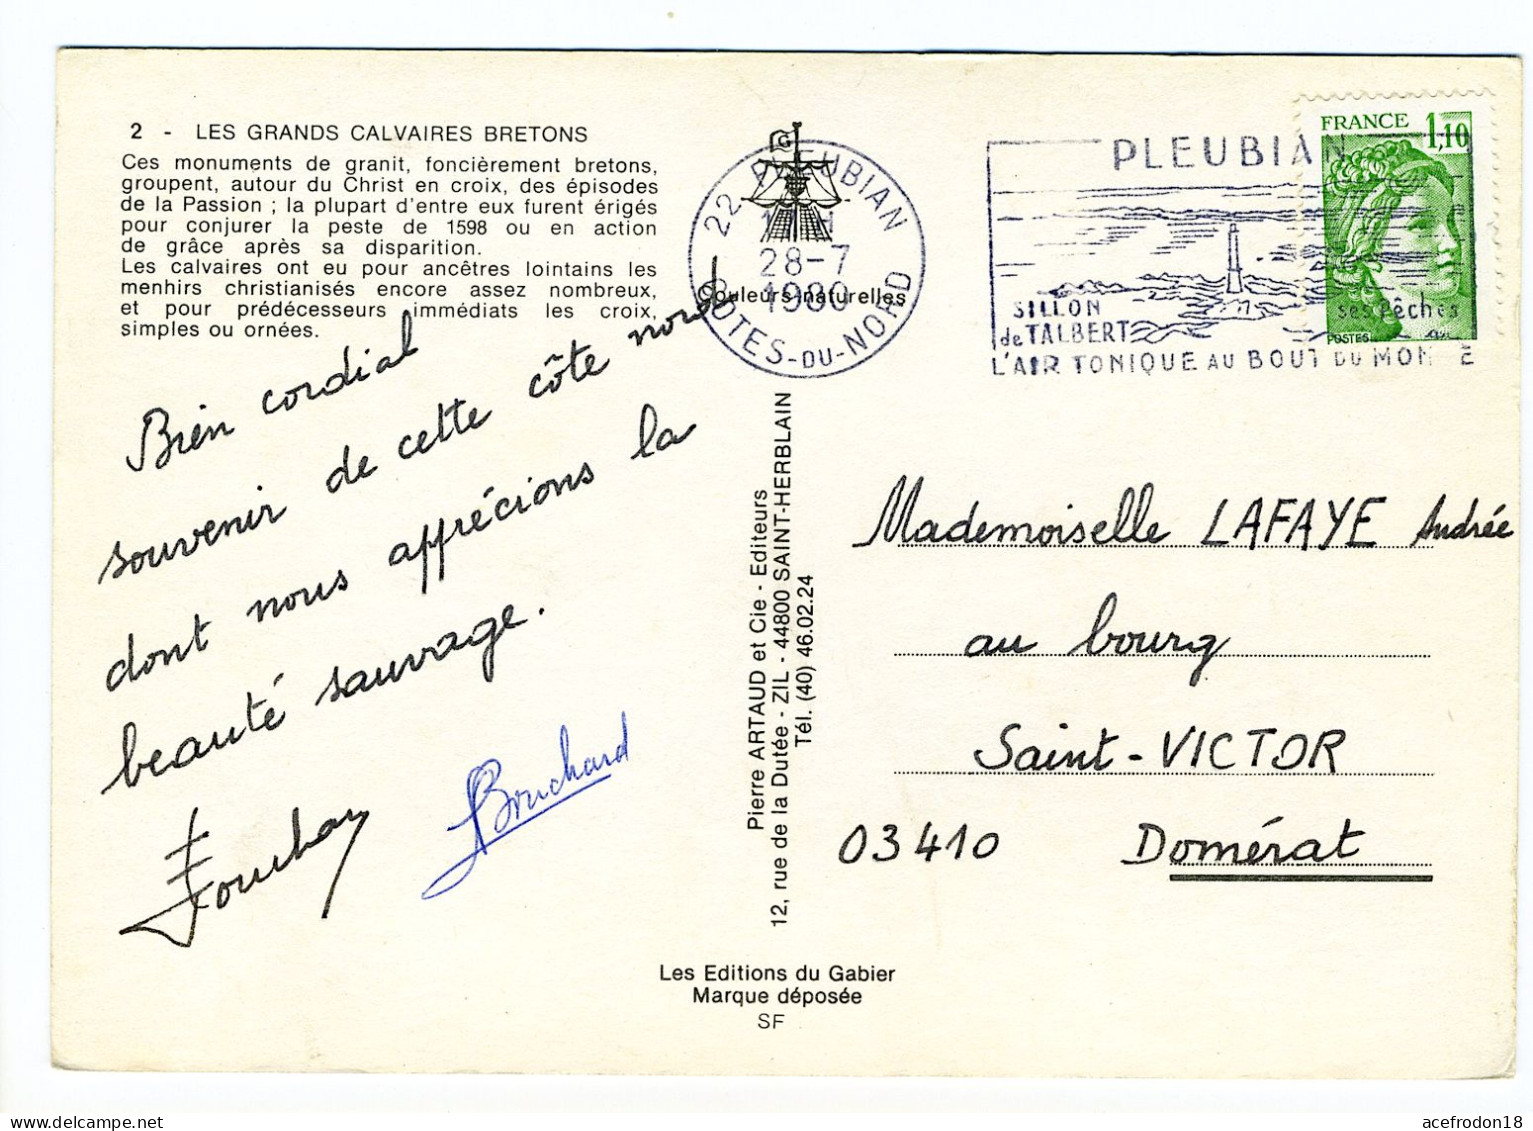 2 - LES GRANDS CALVAIRES BRETONS
Ces monuments de granit, foncièrement bretons,
groupent, autour du Christ en croix, des épisodes
de la Passion ; la plupart d'entre eux furent érigés
pour conjurer la peste de 1598 ou en action
de grâce après sa disparition.
Les calvaires ont eu pour ancêtres lointains les
menhirs christianisés encore assez nombreux,
et pour prédécesseurs immédiats les croix,
simples ou ornées.
Bien cordial
souvenir de cette côte nord
dont nous apprécions la
beauté sauvage.
Bouchard
G
22 PLEUBIAN
28-7
1980
COTES-DU-NORD
Couleurs naturelles
Pierre ARTAUD et Cie - Editeurs
12, rue de la Dutée - ZIL - 44800 SAINT-HERBLAIN
Tél. (40) 46.02.24
Les Editions du Gabier
Marque déposée
SF
PLEUBIAN
SILLON
de TALBERT
ses Pêches
L'AIR TONIQUE AU BOUT DU MONDE
FRANCE 1,10
POSTES
Mademoiselle LAFAYE Andrée
au bourg
Saint-VICTOR
03410 Domérat
acefrodon18